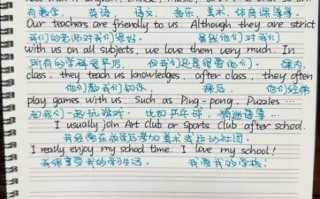 Our teachers are friendly to us. Although they are strict
我们的老师对我们很好。 虽然他们对我们
with us on all subjects, we love them very much. In
所有的学科都严厉, 但我们还是很爱他们。 课内
class, they teach us knowledges, after class, they often
他们教我们知识, 课后 他们经常
play games with us. Such as Ping-pong, Puzzles ...
和我们一起玩游戏. 比如乒乓球、猜谜语等...
I usually join Art club or Sports club after school.
我经常在放学后参加美术或运动社团.
I really enjoy my school time. I love my school!
我很享受我的学习生活. 我爱我的学校!